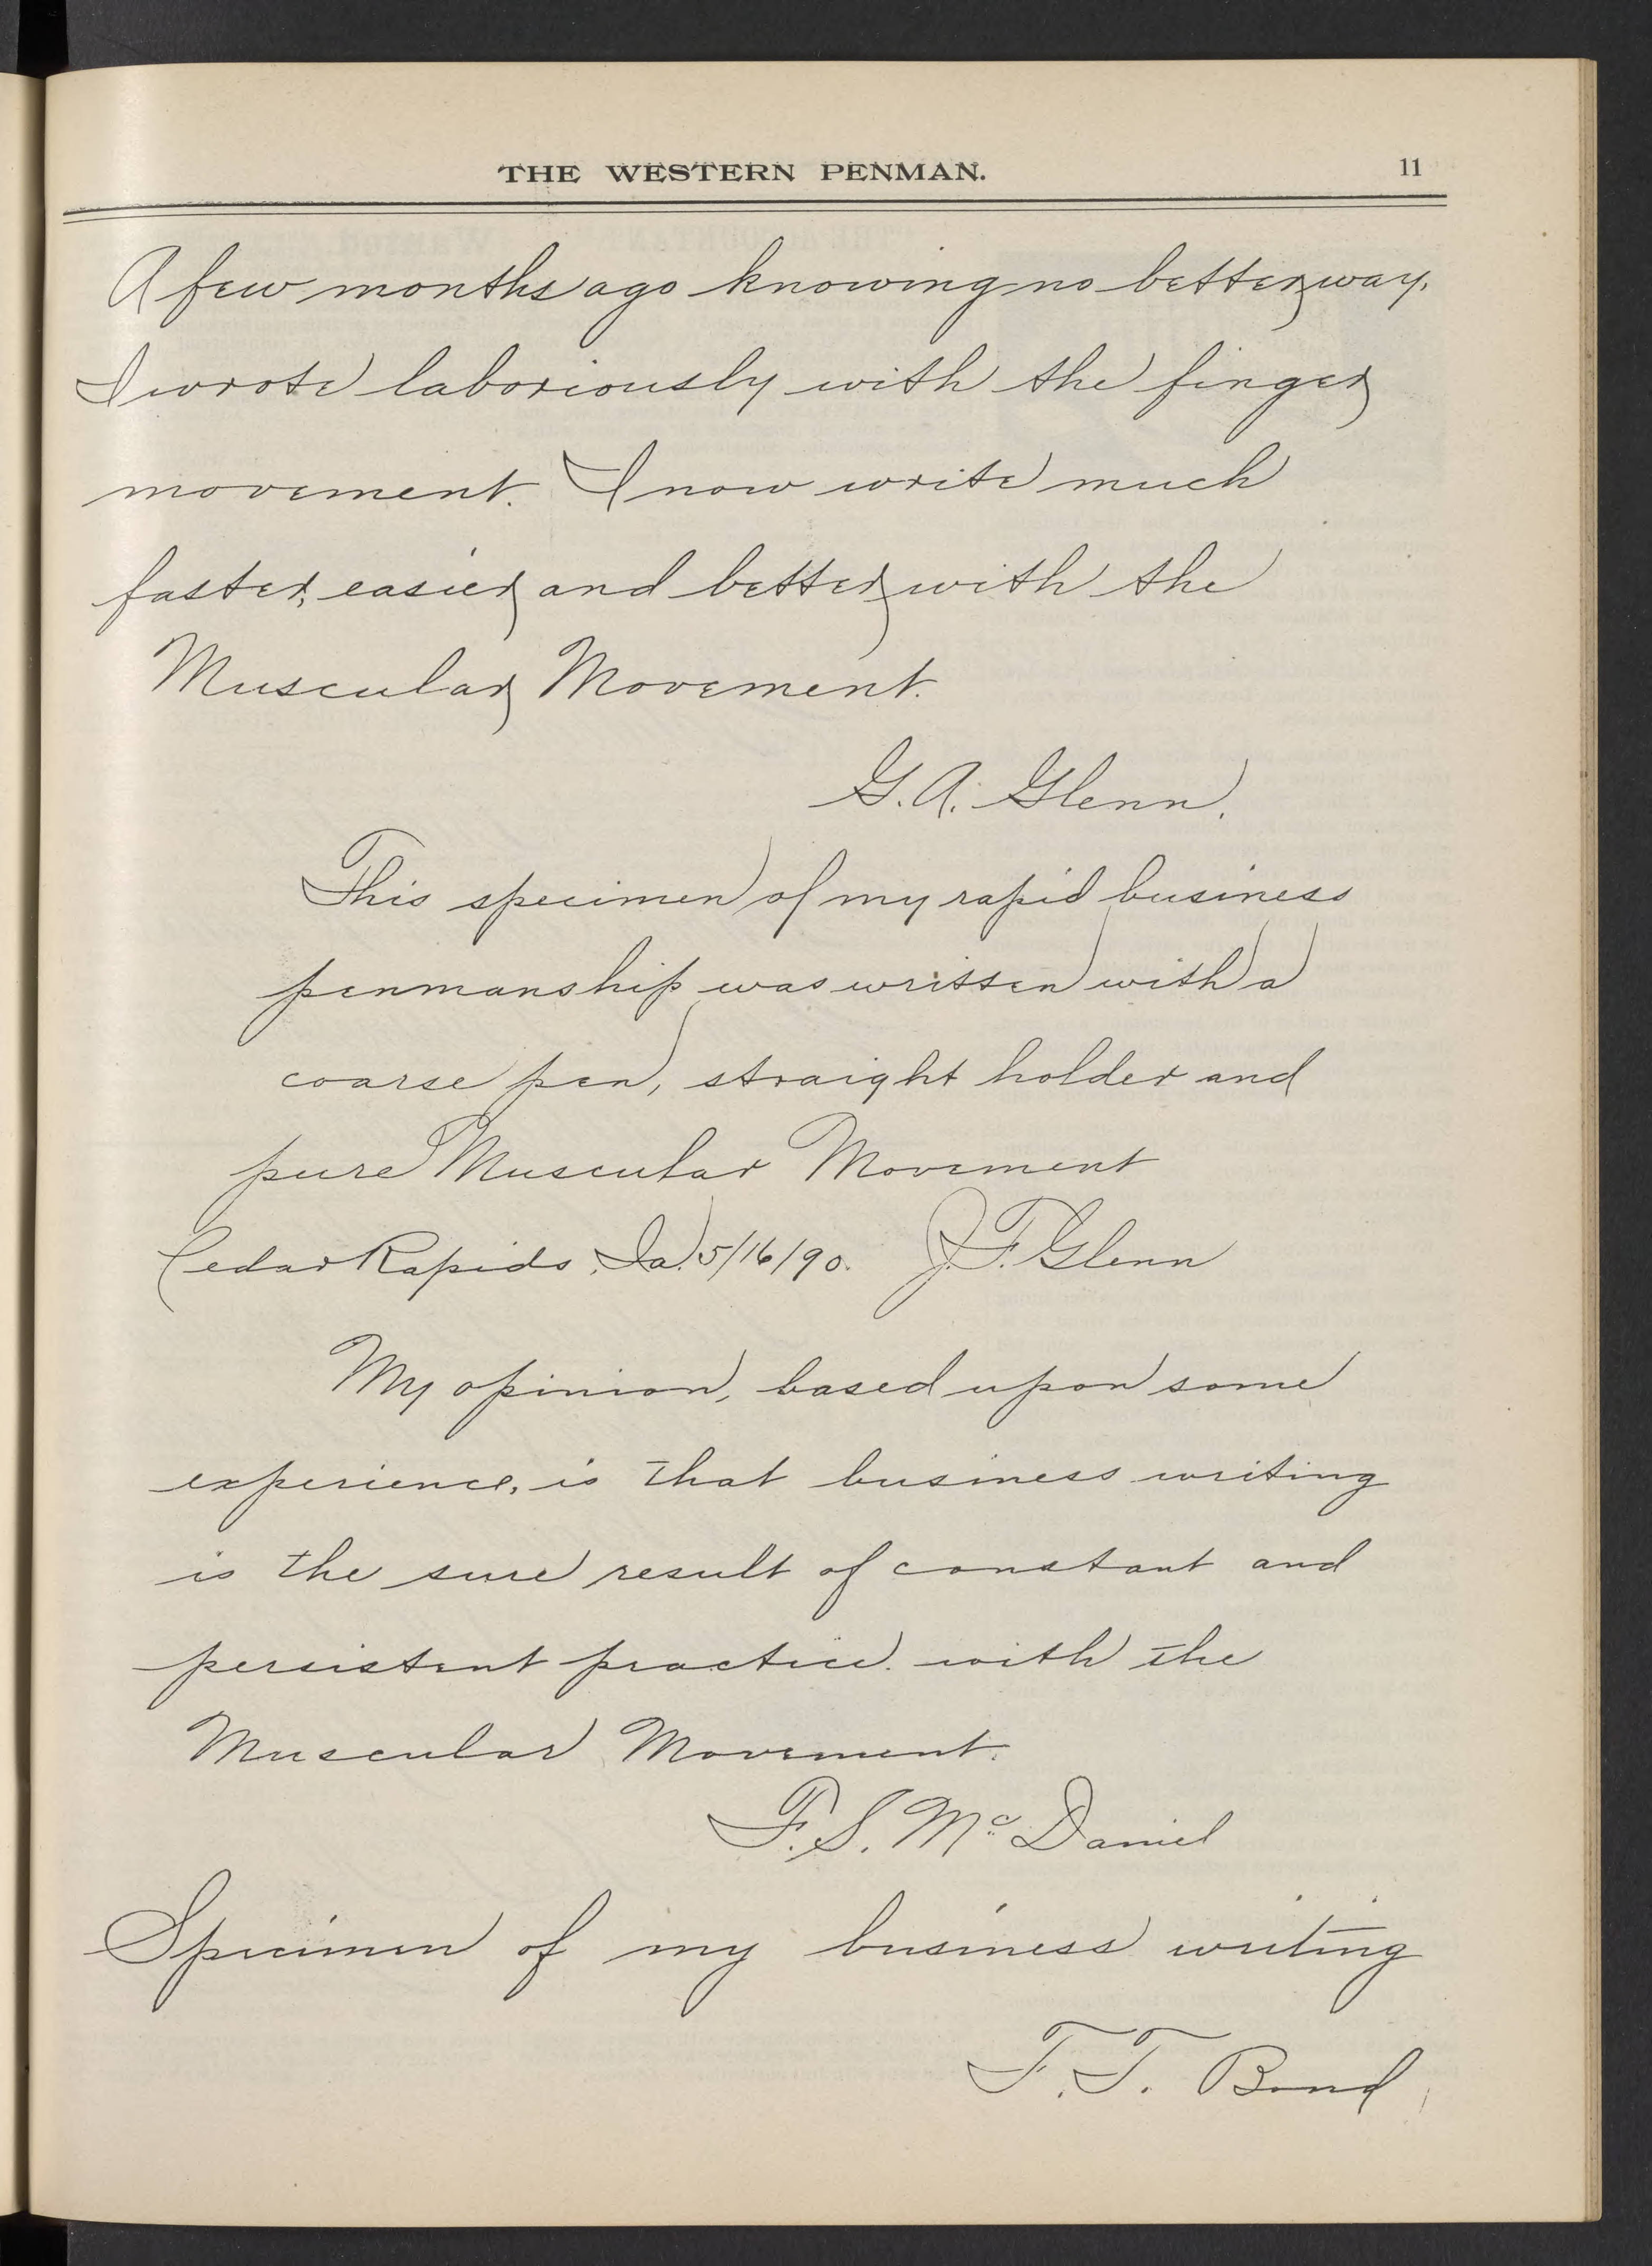 THE WESTERN PENMAN. 11
A few months ago knowing no better way,
I wrote laboriously with the finger
movement. I now write much
faster, easier and better with the
Muscular Movement.
G. A. Glenn.
This specimen of my rapid business
penmanship was written with a
coarse pen, straight holder and
pure Muscular Movement
Cedar Rapids, Ia. 5/16/90. J. F. Glenn
My opinion, based upon some
experience, is that business writing
is the sure result of constant and
persistent practice with the
Muscular Movement.
F. S. McDaniel
Specimen of my business writing
F. T. Bond